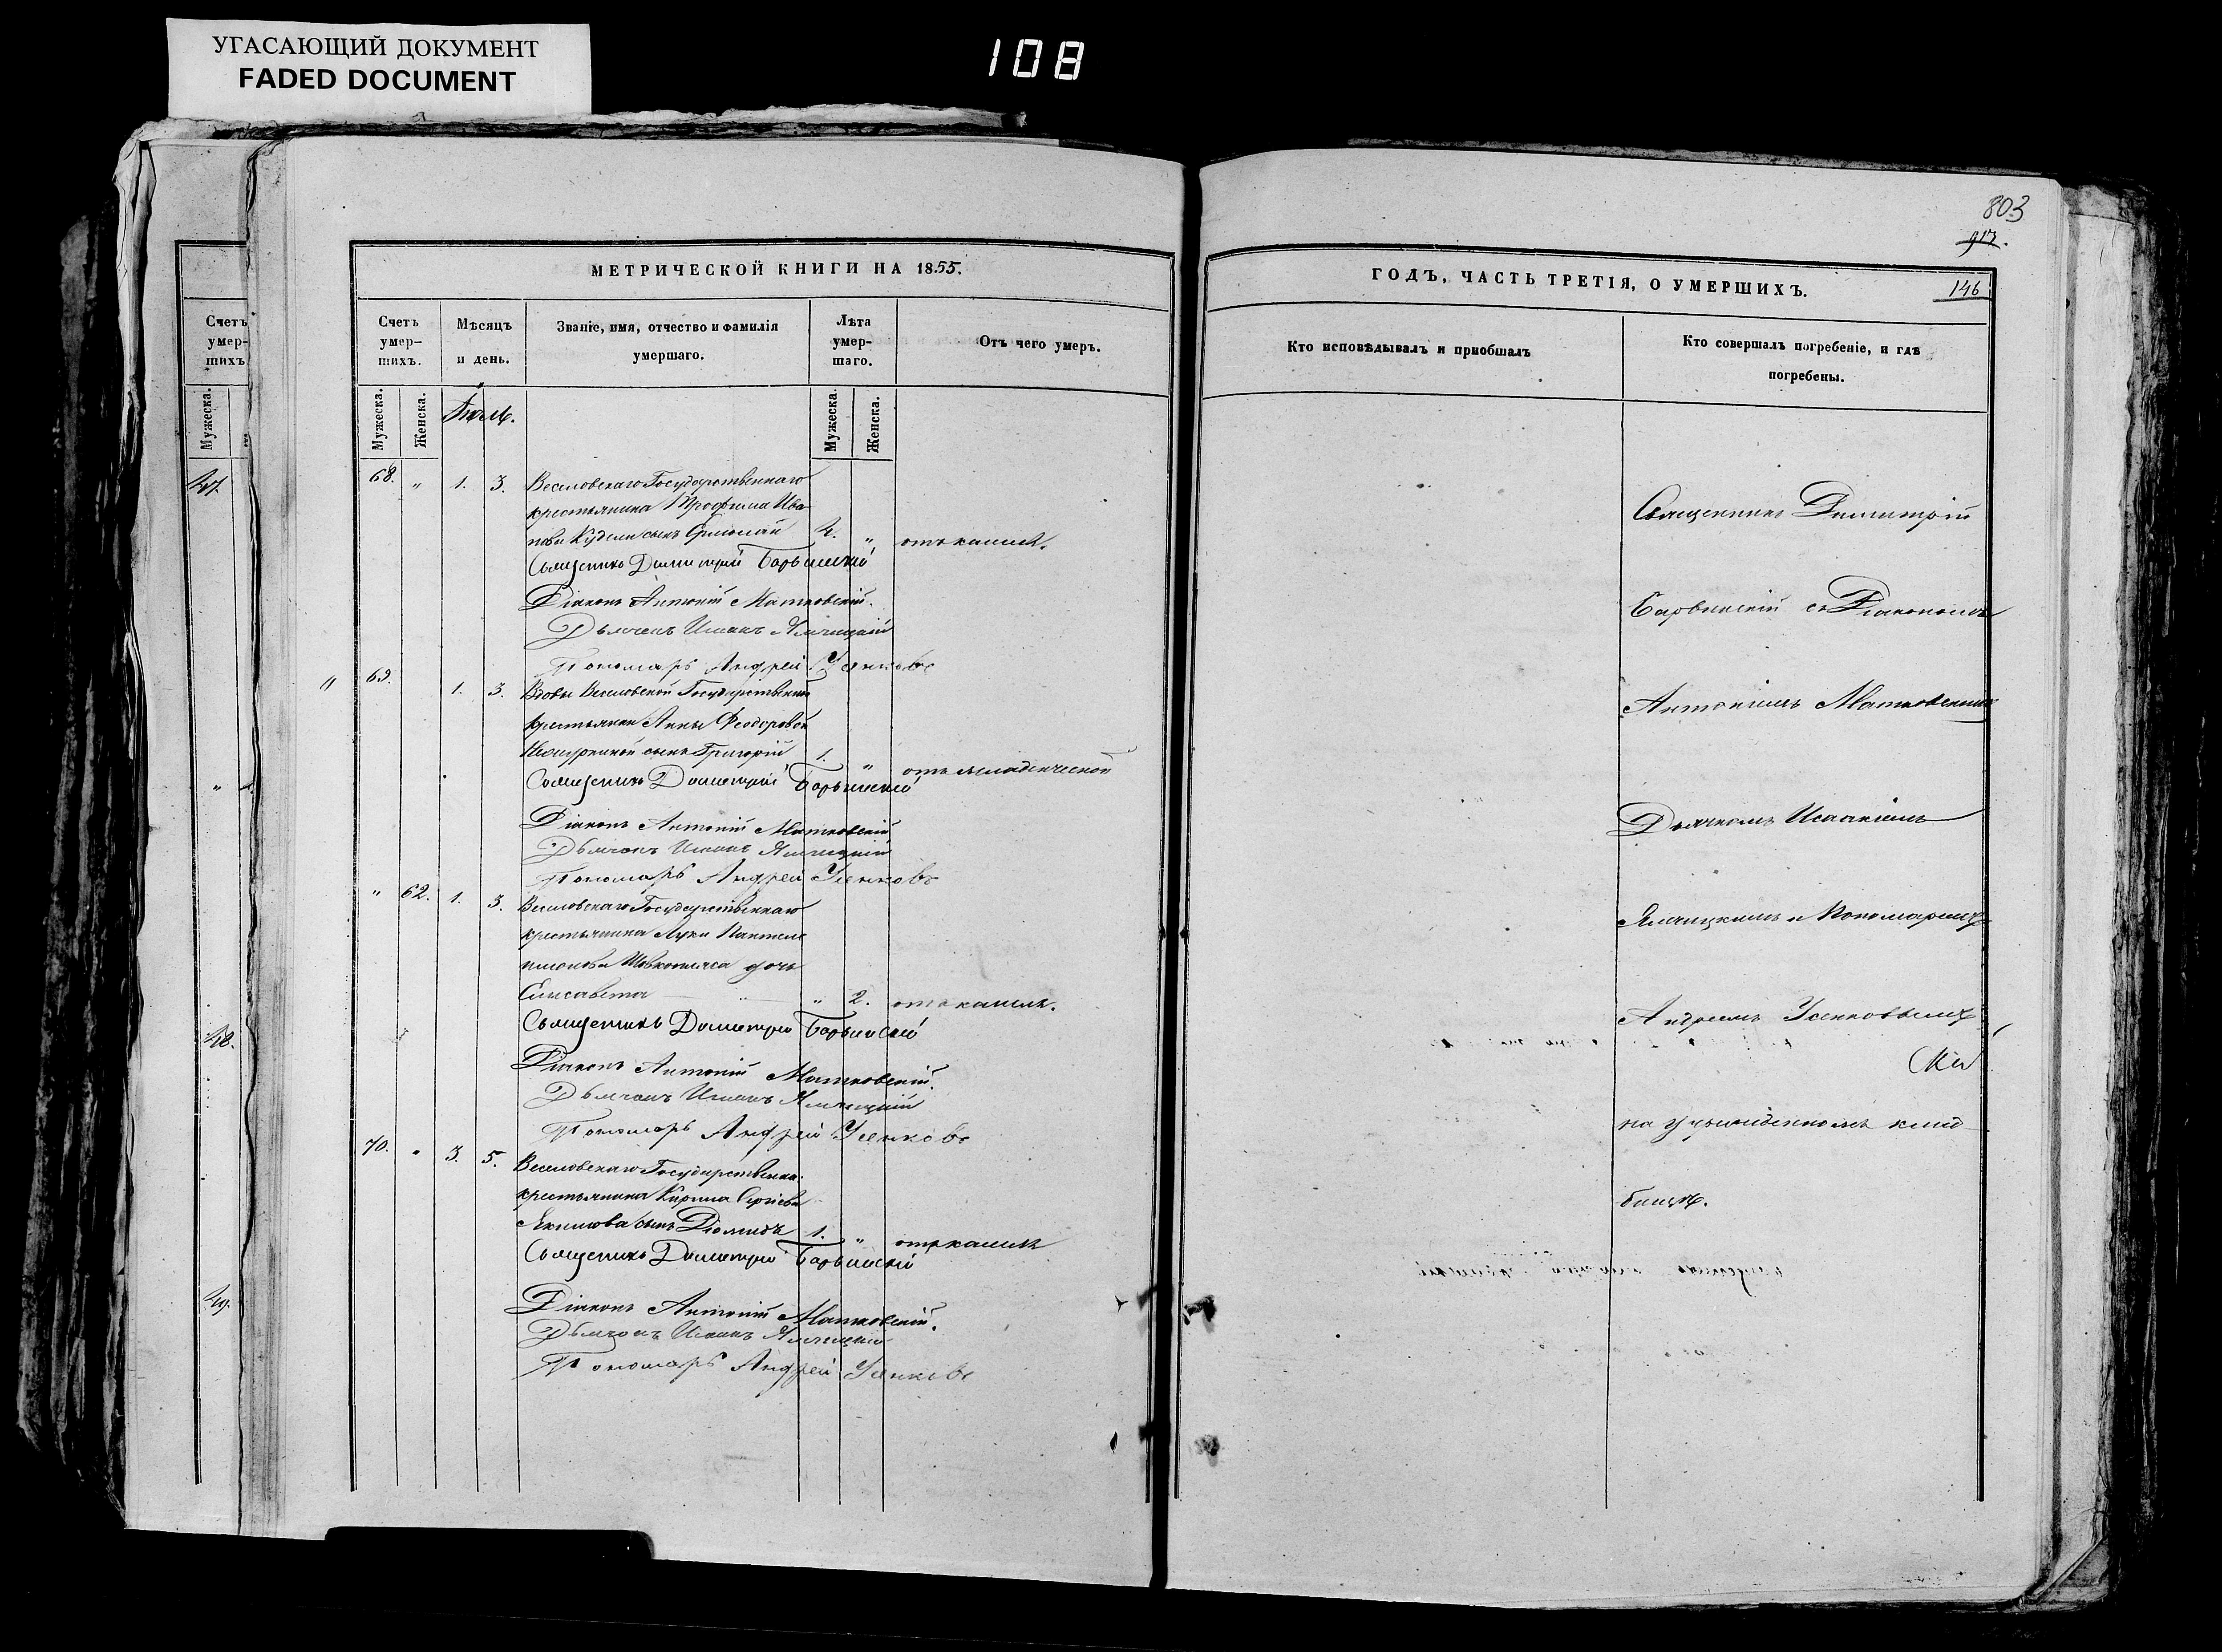 УГАСАЮЩИЙ ДОКУМЕНТ
FADED DOCUMENT
108
Счетъ
умер-
шихъ
Мужеска.
47.
48.
49.
МЕТРИЧЕСКОЙ КНИГИ НА 1855.
Счетъ
умер-
шихъ.
Мѣсяцъ
и день.
Званіе, имя, отчество и фамилія
умершаго.
Лѣта
умер-
шаго.
Отъ чего умеръ.
Мужеска.
Женска.
Іюль.
Мужеска.
Женска.
68. " 1. 3. Веселовскаго Государственнаго
крестьянина Трофима Ива
нова сынъ 4. " отъ кашля.
Священникъ Димитрій Барвинскій
Діаконъ Антоній Матковскій.
Дьячекъ Исаакъ Ямчицкій
Пономарь Андрей Усенковъ
" 69. 1. 3. Вдовы Веселовской Государственной
крестьянки Анны Феодоровой
сынъ Григорій 1. " отъ младенческой
Священникъ Димитрій Барвинскій
Діаконъ Антоній Матковскій
Дьячекъ Исаакъ Ямчицкій
Пономарь Андрей Усенковъ
" 62. 1. 3. Веселовскаго Государственнаго
крестьянина Луки Пантеле
имонова Шовкопляса дочь
Елисавета " 2. отъ кашля.
Священникъ Димитрій Барвинскій
Діаконъ Антоній Матковскій.
Дьячекъ Исаакъ Ямчицкій
Пономарь Андрей Усенковъ
70. " 3. 5. Веселовскаго Государственна.
крестьянина Кирила Сергіева
Якимова сынъ Діомидъ 1. " отъ кашля
Священникъ Димитрій Барвинскій
Діаконъ Антоній Матковскій.
Дьячекъ Исаакъ Ямчицкій
Пономарь Андрей Усенковъ
803
917.
ГОДЪ, ЧАСТЬ ТРЕТІЯ, О УМЕРШИХЪ.
146
Кто исповѣдывалъ и пріобщалъ
Кто совершалъ погребеніе, и гдѣ
погребены.
Священникъ Димитрій
Барвинскій съ Діакономъ
Антоніемъ Матковскимъ
Дьячкомъ Исаакіемъ
Ямчицкимъ и Пономаремъ
Андреемъ Усенковымъ
на клад
бищѣ.